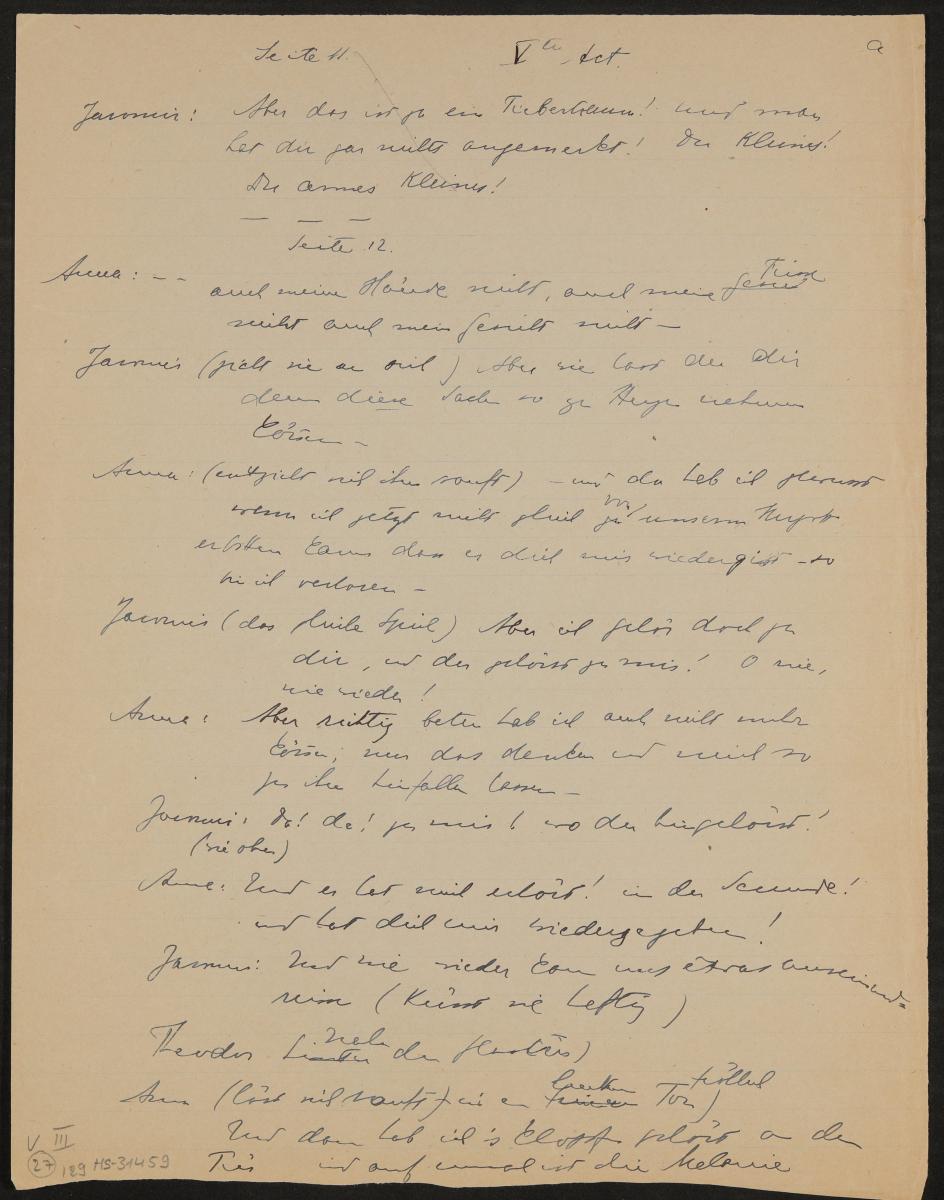 Seite 11. Vter Act. a
Jaromir: Aber das ist ja ein Fiebertraum! und man
hat dir gar nichts angemerkt! Du Kleines!
Du armes Kleines!
— — —
Seite 12.
Anna: – – auch meine Hände nicht, auch meine Füsse
nicht auch mein Gesicht nicht —
Jaromir (zieht sie an sich) Aber wie hast du dir
denn diese Sache so zu Herzen nehmen
können —
Anna: (entzieht sich ihm sanft) – und da hab ich gewusst
wenn ich jetzt nicht gleich von unserm Herrgott
erbitten kann dass er dich mir wiedergibt – so
bin ich verloren –
Jaromir (das gleiche Spiel) Aber ich gehör doch zu
dir, und du gehörst zu mir! O nie,
nie wieder!
Anna: Aber richtig beten hab ich auch nicht mehr
können; nur das denken und mich so
zu ihm hinfallen lassen –
Jaromir: Da! da! zu mir! wo du hingehörst!
(wie oben)
Anna: Und er hat mich erhört! in der Secunde!
und hat dich mir wiedergegeben!
Jaromir: Und nie wieder kann uns etwas auseinand-
reissen (Küsst sie heftig)
Theodor hinter der Glastür)
Anna (löst sich sanft, in einem Ton)
Und dann hab ich's Klopfen gehört an der
Tür und auf einmal ist die Melanie
V III
27 129 HS-31459